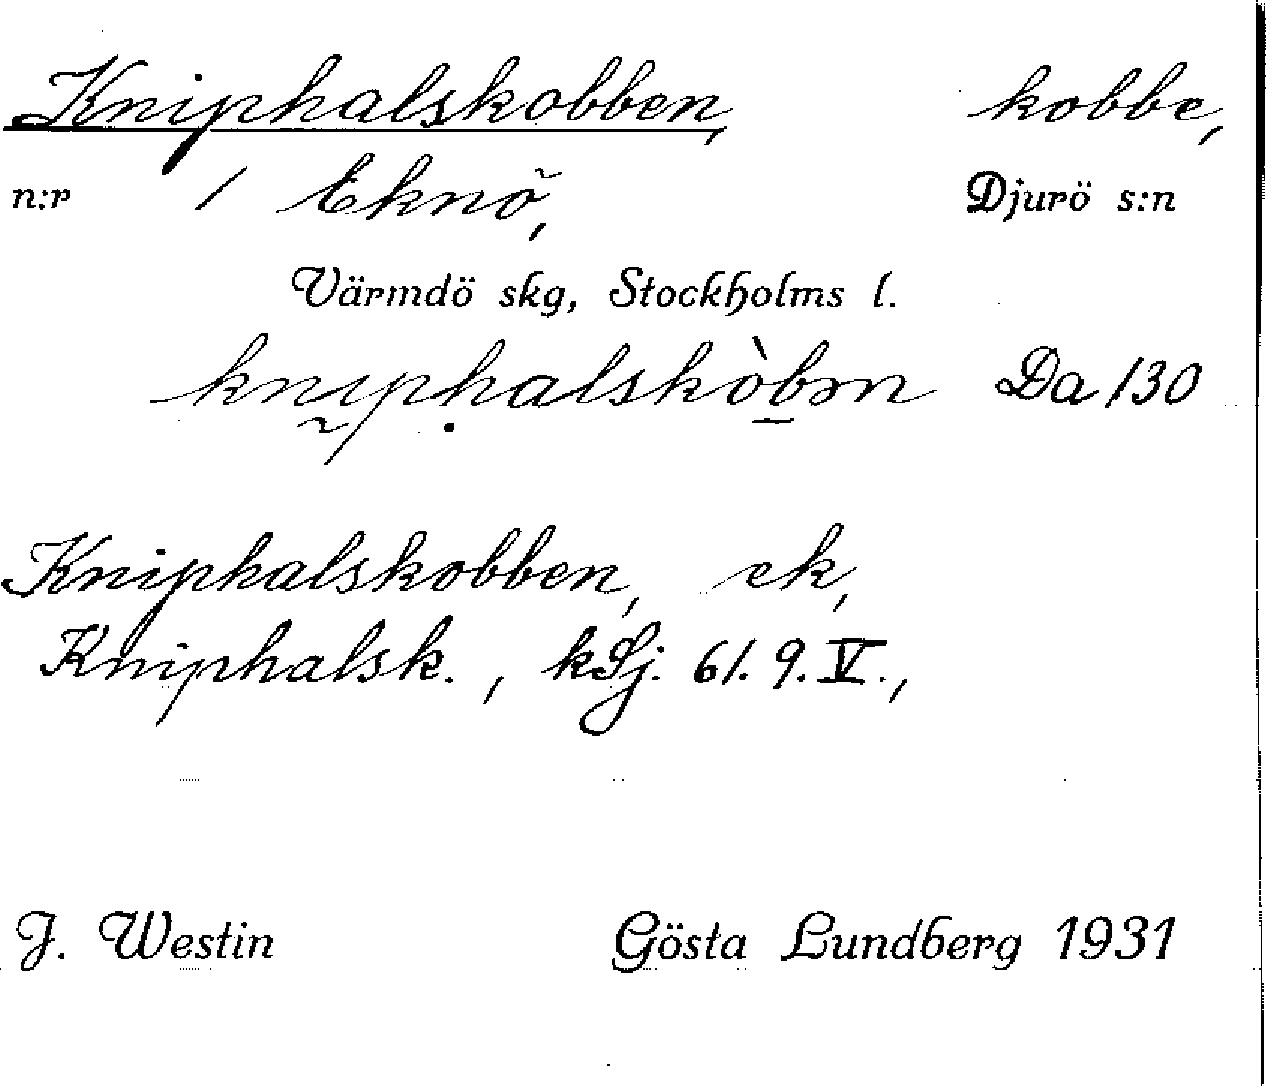 Kniphalskobben, kobbe,
n:r 1 Eknö, Djurö s:n
Värmdö skg, Stockholms l.
knıphalskòbm Da 130
Kniphalskobben, ek,
Kniphalsk., kSj. 61. 9. V.,
J. Westin Gösta Lundberg 1931